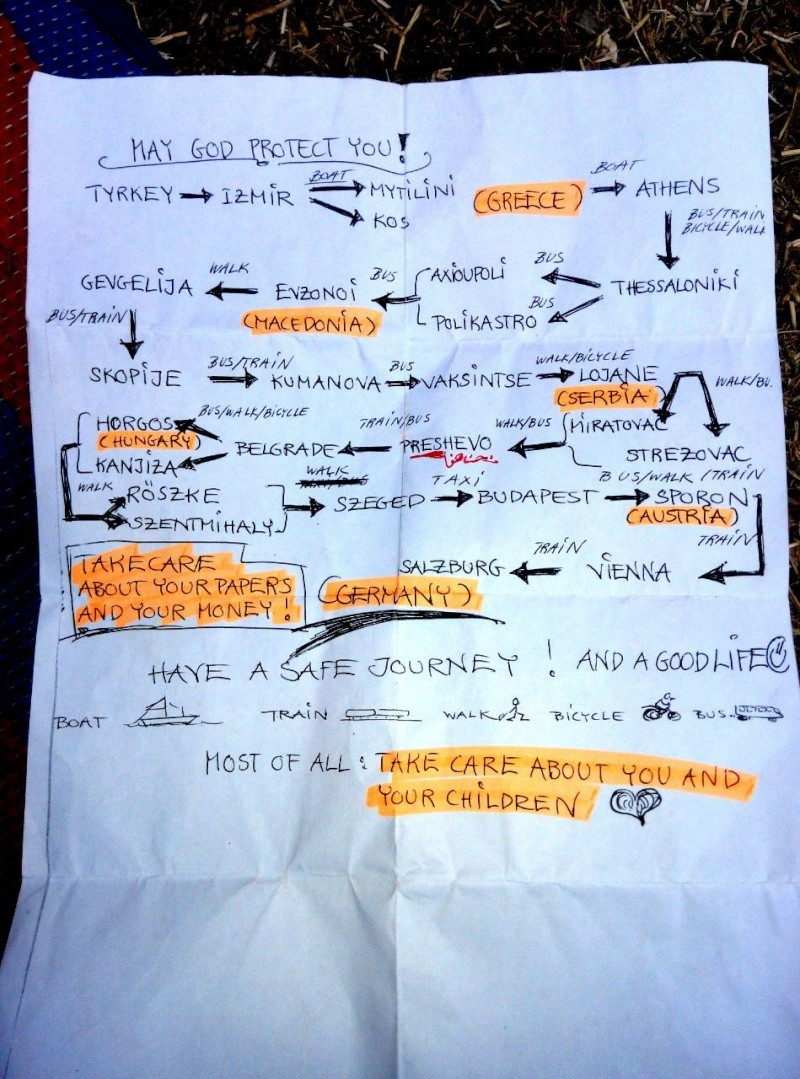 MAY GOD PROTECT YOU!
TYRKEY → IZMIR BOAT → MYTILINI (GREECE) BOAT → ATHENS
→ KOS
BUS/TRAIN
BICYCLE/WALK
GEVGELIJA WALK ← EVZONOI BUS ← AXIOUPOLI BUS ← THESSALONIKI
(MACEDONIA) POLIKASTRO BUS
BUS/TRAIN
SKOPIJE BUS/TRAIN → KUMANOVA BUS → VAKSINTSE WALK/BICYCLE → LOJANE WALK/BU.
(SERBIA)
HORGOS BUS/WALK/BICYCLE TRAIN/BUS WALK/BUS MIRATOVAC
(HUNGARY) BELGRADE ← PRESHEVO ← STREZOVAC
KANJIZA
WALK RÖSZKE WALK TAXI BUS/WALK/TRAIN
SZENTMIHALY → SZEGED → BUDAPEST → SPORON
(AUSTRIA)
TRAIN
TAKE CARE
ABOUT YOUR PAPERS
AND YOUR MONEY!
SALZBURG TRAIN ← VIENNA
(GERMANY)
HAVE A SAFE JOURNEY! AND A GOOD LIFE
BOAT TRAIN WALK BICYCLE BUS
MOST OF ALL: TAKE CARE ABOUT YOU AND
YOUR CHILDREN